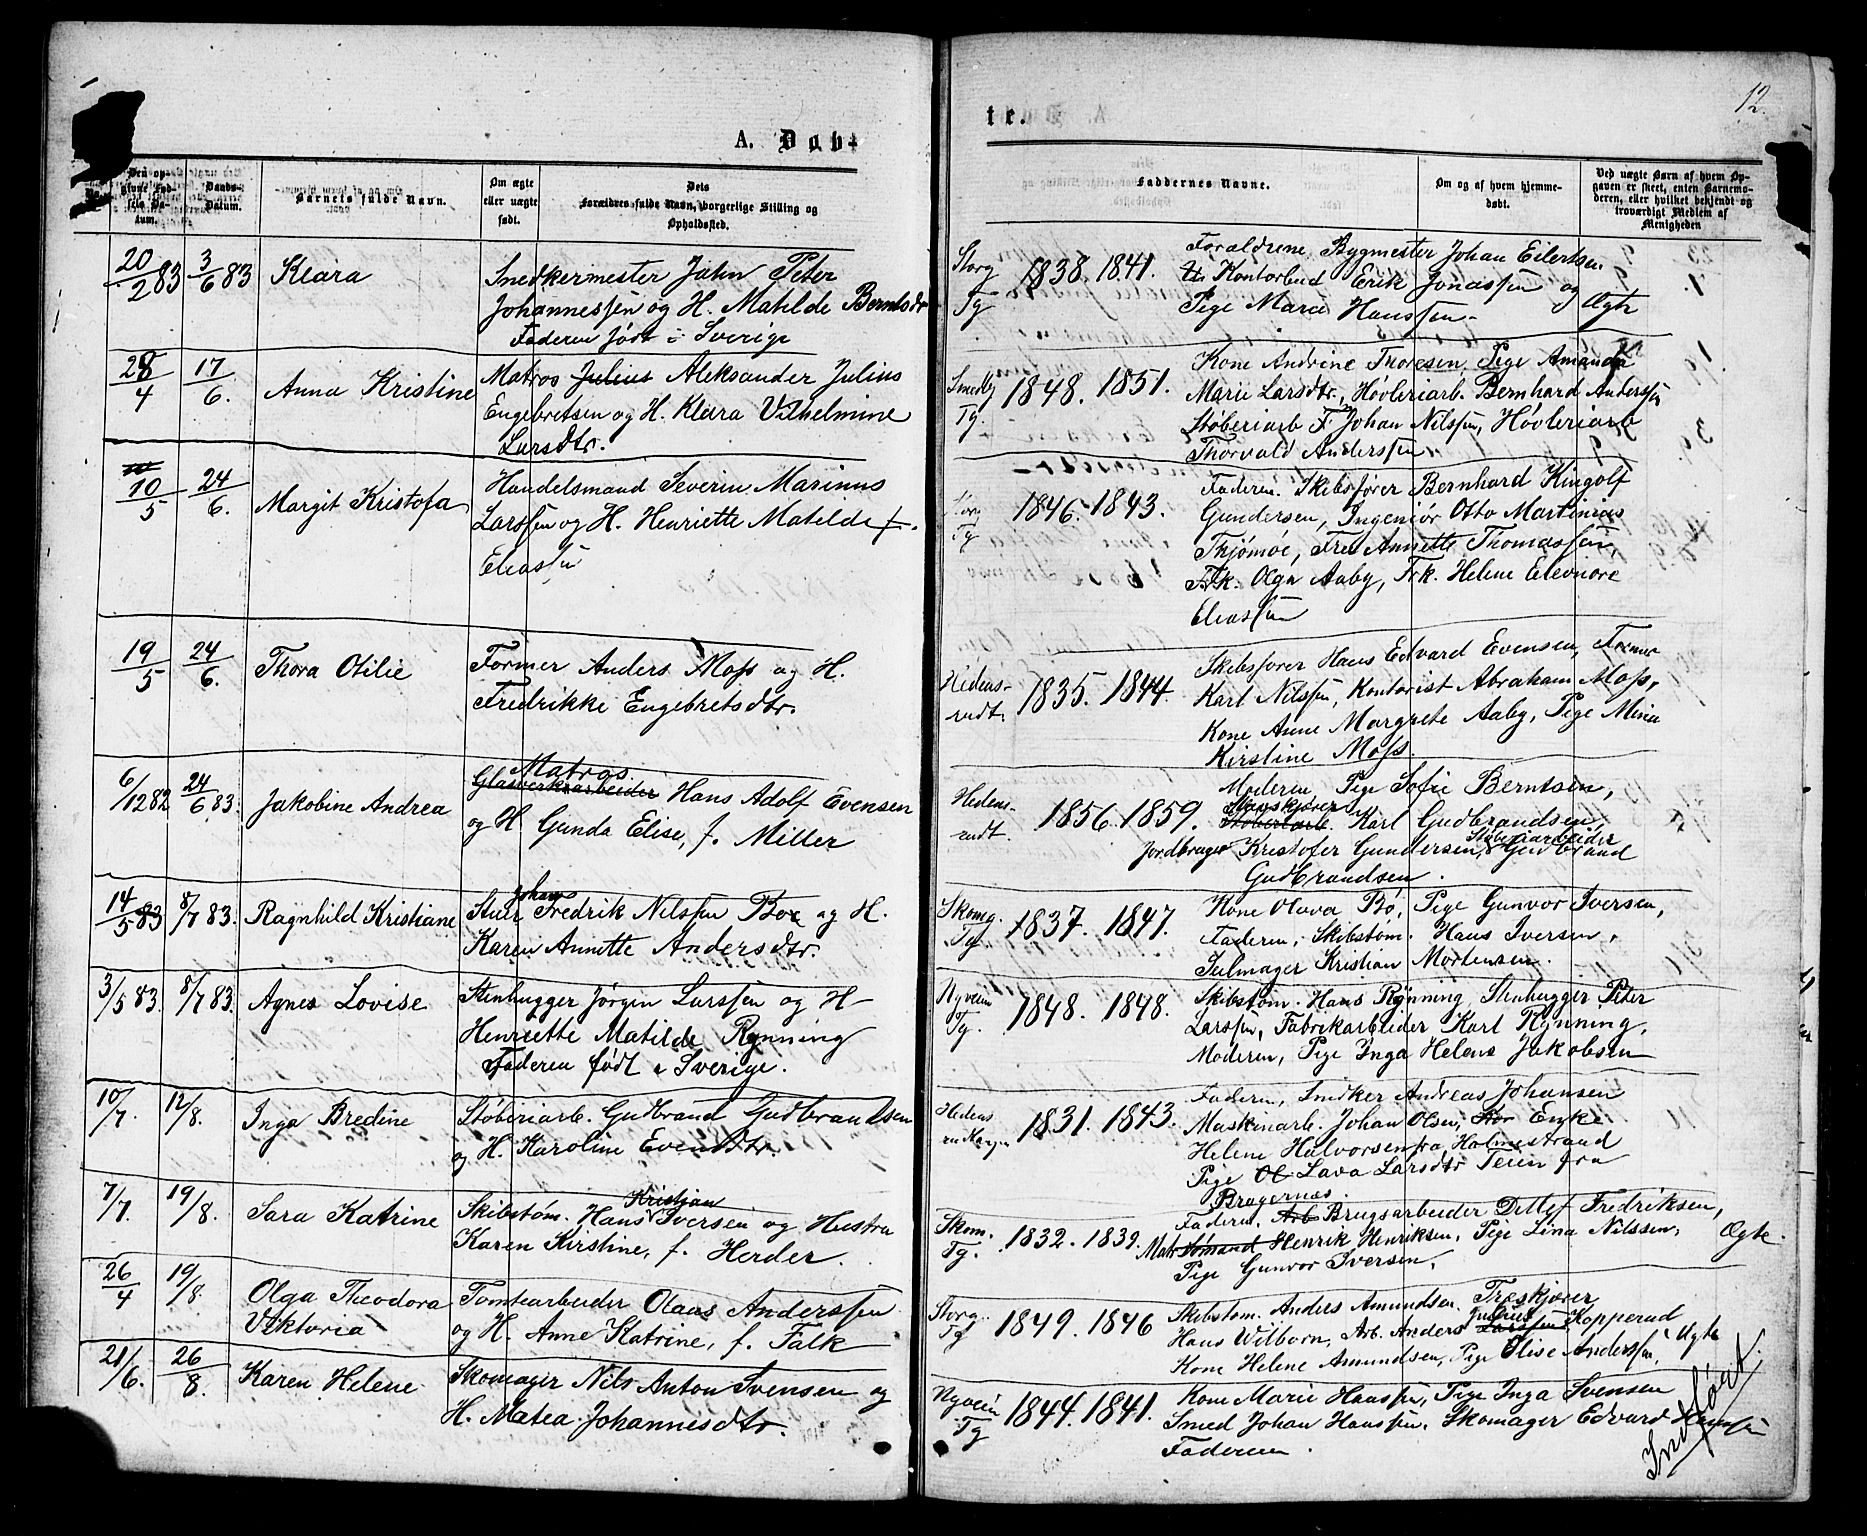 12.
A. Døb-
te.
Barnets fulde Navn.
Om ægte eller uægte født.
Dets Forældres fulde Navn, borgerlige Stilling og Opholdssted.
Faddernes Navne.
Om og af hvem hjemmedøbt.
Ved uægte Børn af hvem Opgaven er skeet, enten Barnemoderen, eller hvilket bekjendt og troværdigt Medlem af Menigheden
20/2 83 3/6 83 Klara Snedkermester John Peter
Johannessen og H. Matilde Berntsdr
Faderen født i Sverige
Storg Tg 1838. 1841. Forældrene, Bygmester Johan Eilertsen
Kontorbud Erik Jonassen og
Pige Maren Hanssen. Ægte
28/4 17/6. Anna Kristine Matros Julius Aleksander Julius
Engebretsen og H. Klara Vilhelmine
Larsdtr.
Smedby Tg. 1848. 1851. Kone Andrine Thoresen, Pige Amanda
Marie Larsdtr, Høvleriarb. Bernhard Anderssen
Støberiarb F. Johan Nilssen, Høvleriarb
Thorvald Anderssen
10/5 24/6. Margit Kristofa Handelsmand Severin Marinus
Larssen og H. Henriette Matilde f.
Eliassen
Storg Tg 1846. 1843. Faderen. Skibsfører Bernhard Kingolf
Gundersen, Ingeniør Otto Martinius
Thjømøe, Fru Annette Thomassen
Frk. Olga Aaby, Frk. Helene Eleonore
Eliassen
19/5 24/6. Thora Otilie Former Anders Moss og H.
Fredrikke Engebretsdtr.
Hedens-rudt. 1835. 1844. Skibsfører Hans Edvard Evensen, Former
Karl Nilssen, Kontorist Abraham Moss,
Kone Anne Margrete Aaby, Pige Mina
Kirstine Moss.
6/12 82 24/6 83. Jakobine Andrea Matros
Glasverksarbeider Hans Adolf Evensen
og H. Gunda Elise, f. Miller
Hedens-rudt. 1856. 1859. Moderen, Pige Sofie Berntsen,
Støberiarb. Karl Gudbrandsen,
Støberiarbeider
Jordbruger Kristofer Gundersen, Gudbrand
Gudbrandsen.
14/5 83 8/7 83. Ragnhild Kristiane Johan
Fredrik Nilssen Boe og H.
Karen Annette Andersdtr.
Skomg. Tg. 1837. 1847. Kone Olava Bø, Pige Gunvor Iversen,
Faderen, Skibstøm. Hans Iversen,
Seilmager Kristian Mortensen.
3/5 83. 8/7 83. Agnes Lovise Stenhugger Jørgen Larssen og H
Henriette Matilde Rynning
Faderen født i Sverige.
Nyveien Tg. 1848. 1848. Skibstøm. Hans Rynning, Stenhugger Peter
Larssen, Fabrikarbeider Karl Rynning,
Moderen, Pige Inga Helene Jakobsen
10/7. 12/8. Inga Bredine Støberiarb. Gudbrand Gudbrandsen
og H. Karoline Evensdtr.
1831. 1843. Faderen, Snedker Andreas Johansen
Maskinarb. Johan Olsen, Enke
Helene Halvorsen fra Holmestrand
Pige Lava Larsdtr Teien fra
Bragernæs.
7/7. 19/8. Sara Katrine Kristian
Skibstøm. Hans Iversen og Hustru
Karen Kirstine, f. Herder.
Skom. Tg. 1832. 1839. Faderen, Arb Brugsarbeider Detlef Fredriksen,
Matr Sømand Henrik Henriksen, Pige Lina Nilssen, Ægte.
Pige Gunvor Iversen.
26/4 19/8. Olga Theodora Tomtearbeider Olaus Anderssen
Viktoria og H. Anne Katrine, f. Falk
Storg. Tg 1849. 1846 Skibstøm. Anders Amundsen. Træskjører
Julius
Hans Wilborn, Arb. Anders Larssen Kopperud
Kone Helene Amundsen, Pige Elise Anderssen, Ægte
21/6. 26/8. Karen Helene Skomager Nils Anton Svensen og
H. Matea Johannesdtr.
Nyveien Tg 1844. 1841. Kone Marie Hanssen, Pige Inga Svensen
Smed Johan Hanssen, Skomager Edvard Hanssen
Faderen.
Indført.